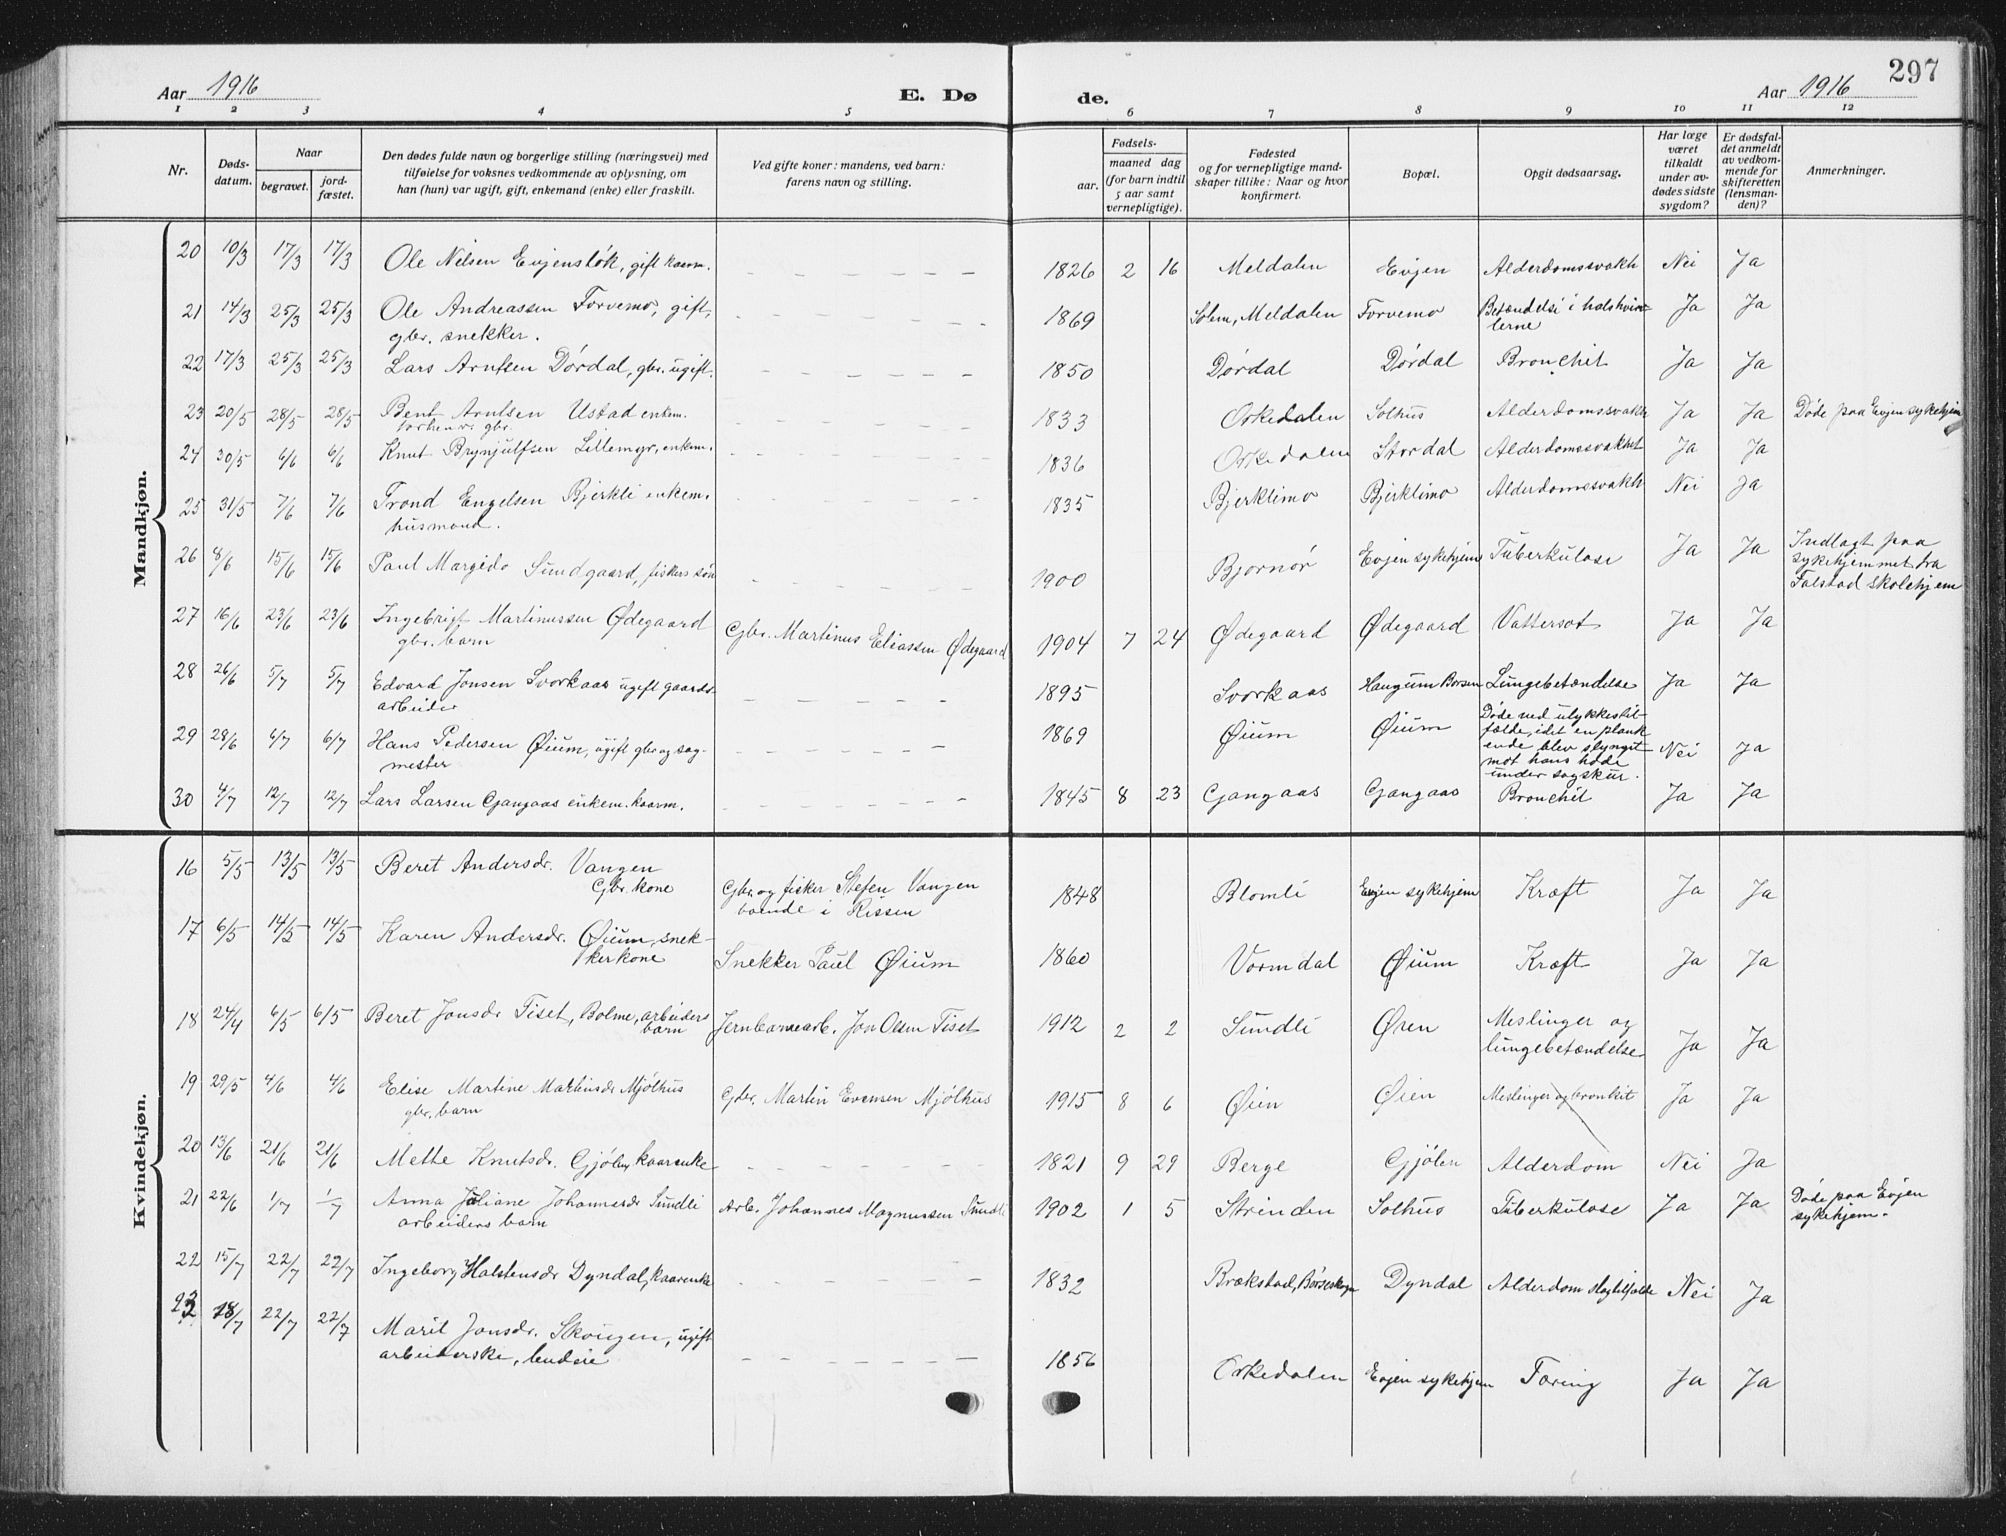 297
Aar 1916 E. Dø de. Aar 1916
1 2 3 4 5 6 7 8 9 10 11 12
Nr.
Døds-
datum.
Naar
begravet.
jord-
fæstet.
Den dødes fulde navn og borgerlige stilling (næringsvei) med
tilføielse for voksnes vedkommende av oplysning, om
han (hun) var ugift, gift, enkemand (enke) eller fraskilt.
Ved gifte koner: mandens, ved barn:
farens navn og stilling.
aar.
Fødsels-
maaned dag
(for barn indtil
5 aar samt
vernepligtige).
Fødested
og for vernepligtige mand-
skaper tillike: Naar og hvor
konfirmert.
Bopæl.
Opgit dødsaarsag.
Har læge
været
tilkaldt
under av-
dødes sidste
sygdom?
Er dødsfal-
det anmeldt
av vedkom-
mende for
skifteretten
(lensman-
den)?
Anmerkninger.
Mandkjøn.
20 10/3 17/3 17/3 Ole Nilsen Evjensløk, gift kaarm. 1826 2 16 Meldalen Evjen Alderdomssvakh Nei Ja
21 14/3 25/3 25/3 Ole Andreassen Forvemo, gift, 1869 Solem, Meldalen Forvemo Betændelsi i halshvirv- Ja Ja
gbr. snekker. lerne
22 17/3 25/3 25/3 Lars Arntsen Dórdal, gbr. ugift. 1850 Dórdal Dórdal Bronchit Ja Ja
23 20/5 28/5 28/5 Bent Arntsen Ustad enkem. 1833 Orkedalen Solhus Alderdomssvakh Ja Ja Døde paa Evjen sykehjem
forhenv. gbr.
24 30/5 6/6 6/6 Knut Brynjulfsen Lillemyr, enkem. 1836 Orkedalen Stordal Alderdomssvakhet Ja Ja
25 31/5 7/6 7/6 Trond Engelsen Bjerkli enkem. 1835 Bjerklimo Bjerklimo Alderdomssvakh Nei Ja
husmand.
26 8/6 15/6 15/6 Paul Margido Sundgaard, fiskers søn 1900 Bjørnør Evjen sykehjem Tuberkulose Ja Ja Indlagt paa
sykehjemmet fra
Falstad skolehjem
27 16/6 23/6 23/6 Ingebrigt Martinussen Ødegaard Gbr. Martinus Eliassen Ødegaard 1904 7 24 Ødegaard Ødegaard Vattersot Ja Ja
gbr. barn
28 26/6 5/7 5/7 Edvard Jonsen Svorkaas ugift gaards- 1895 Svorkaas Haugum Børsen Lungebetændelse Ja Ja
arbeider
29 28/6 6/7 6/7 Hans Pedersen Øium, ugift gbr. og sag- 1869 Øium Øium Døde ved ulykkestil-
mester fælde, idet en plank
ende blev slynget Nei Ja
mot hans hode
under sagskur.
30 4/7 12/7 12/7 Lars Larsen Gangaas enkem. kaarm. 1845 8 23 Gangaas Gangaas Bronchit Ja Ja
Kvindekjøn.
16 5/5 13/5 13/5 Beret Andersdr. Vangen Gbr. og fisker Stefen Vangen 1848 Blomli Evjen sykehjem Kræft Ja Ja
Gbr. kone boende i Rissen
17 6/5 14/5 14/5 Karen Andersdr. Øium, snek- Snekker Paul Øium 1860 Vormdal Øium Kræft Ja Ja
kerkone
18 24/4 6/5 6/5 Beret Jonsdr Tiset, Bolme, arbeiders Jernbanearb. Jon Olsen Tiset 1912 2 2 Sundli Øren Meslinger og
barn lungebetændelse Ja Ja
19 29/5 4/6 4/6 Elise Martine Martinsdr Mjólhus Gbr. Martin Evensen Mjólhus 1915 8 6 Øien Øien Meslinger og bronkit Ja Ja
gbr. barn
20 13/6 21/6 21/6 Mette Knutsdr. Gjólen, kaarenke 1821 9 29 Berge Gjólen Alderdom Nei Ja
21 22/6 1/7 1/7 Anna Juliane Johannesdr Sundli Arb. Johannes Magnussen Sundli 1902 1 5 Strinden Solhus Tuberkulose Ja Ja Døde paa Evjen
arbeiders barn sykehjem.
22 15/7 22/7 22/7 Ingeborg Halstensdr Dyndal, kaarenke 1832 Brækstad, Børseskogn Dyndal Alderdom slagtilfælde Nei Ja
23 18/7 22/7 22/7 Marit Jonsdr. Skougen, ugift 1856 Orkedalen Evjen sykehjem Tæring Ja Ja
arbeiderske,